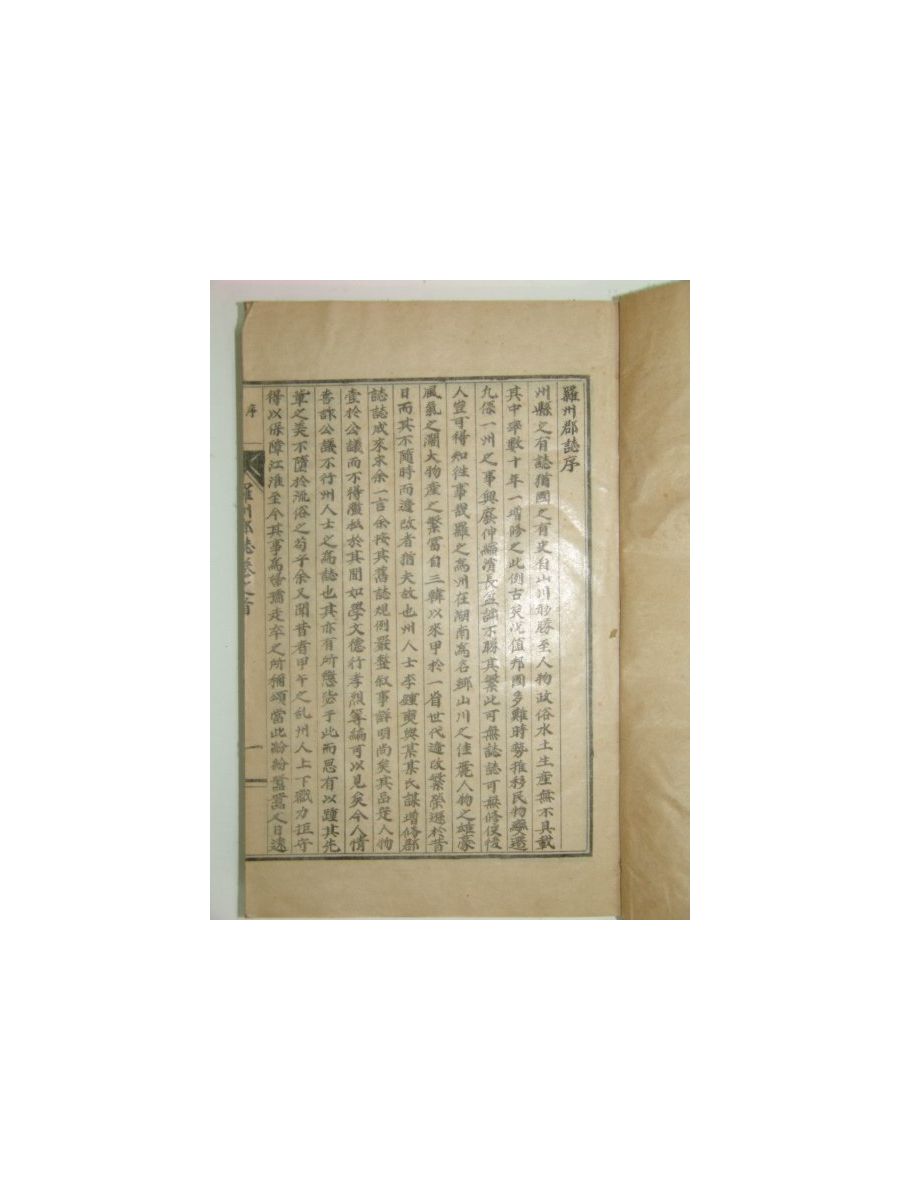 羅州郡誌序
州縣之有誌猶國之有史自山川形勝至人物政俗水土生產無不具載
其中率數十年一增修之此例古矣況值邦國多難時勢推移民物變遷
凡係一州之事興廢伸縮消長益不勝其繁此可無誌誌可無修俟後
人豈可得知往事哉羅之爲州在湖南爲名鄉山川之佳麗人物之雄豪
風氣之濶大物產之繁富自三韓以來甲於一省世代遠改繁榮遜於昔
日而其不隨時而遷改者猶夫故也州人士李鍾奭與某某氏謀增修郡
誌誌成來求余一言余按其舊誌規例嚴整敍事詳明尚矣其品定人物
壹於公議而不得濫私於其間如學文德行孝烈等編可以見矣今人情
公議不行州人士之爲誌也其亦有所懲毖于此而思有以踵其先
輩之美不墮於流俗之苟乎余又聞昔者甲午之亂州人上下戮力拒守
得以保障江淮至今其事爲婦孺走卒之所稱頌當此紛紛囂囂又日遠
序
羅州郡誌卷之首
一